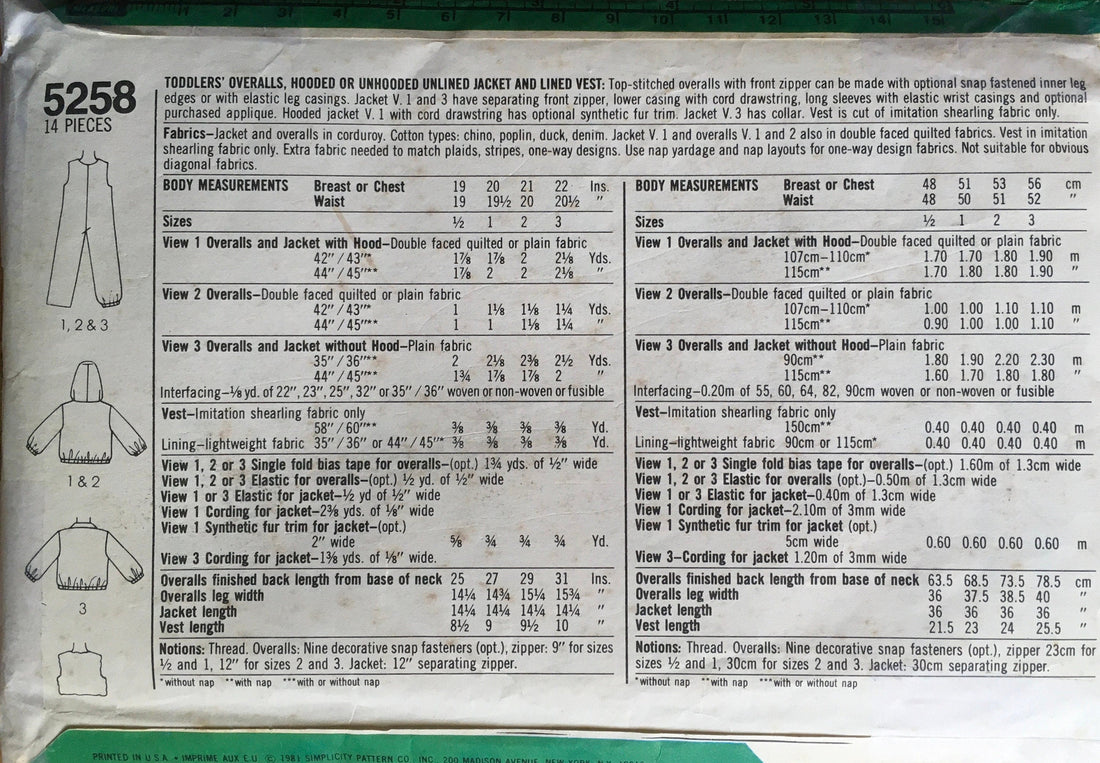 5258
14 PIECES
1, 2 & 3
1 & 2
3
TODDLERS' OVERALLS, HOODED OR UNHOODED UNLINED JACKET AND LINED VEST: Top-stitched overalls with front zipper can be made with optional snap fastened inner leg
edges or with elastic leg casings. Jacket V. 1 and 3 have separating front zipper, lower casing with cord drawstring, long sleeves with elastic wrist casings and optional
purchased applique. Hooded jacket V. 1 with cord drawstring has optional synthetic fur trim. Jacket V. 3 has collar. Vest is cut of imitation shearling fabric only.
Fabrics–Jacket and overalls in corduroy. Cotton types: chino, poplin, duck, denim. Jacket V. 1 and overalls V. 1 and 2 also in double faced quilted fabrics. Vest in imitation
shearling fabric only. Extra fabric needed to match plaids, stripes, one-way designs. Use nap yardage and nap layouts for one-way design fabrics. Not suitable for obvious
diagonal fabrics.
BODY MEASUREMENTS Breast or Chest 19 20 21 22 Ins.
Waist 19 19½ 20 20½ "
Sizes ½ 1 2 3
View 1 Overalls and Jacket with Hood–Double faced quilted or plain fabric
42"/43"* 1⅞ 1⅞ 2 2⅛ Yds.
44"/45"** 1⅞ 2 2 2⅛ "
View 2 Overalls–Double faced quilted or plain fabric
42"/43"* 1 1⅛ 1⅛ 1¼ Yds.
44"/45"** 1 1 1⅛ 1¼ "
View 3 Overalls and Jacket without Hood–Plain fabric
35"/36"** 2 2⅛ 2⅜ 2½ Yds.
44"/45"** 1¾ 1⅞ 1⅞ 2 "
Interfacing–⅛ yd. of 22", 23", 25", 32" or 35"/36" woven or non-woven or fusible
Vest–Imitation shearling fabric only
58"/60"** ⅜ ⅜ ⅜ ⅜ Yd.
Lining–lightweight fabric 35"/36" or 44"/45"* ⅜ ⅜ ⅜ ⅜ Yd.
View 1, 2 or 3 Single fold bias tape for overalls–(opt.) 1¾ yds. of ½" wide
View 1, 2 or 3 Elastic for overalls–(opt.) ½ yd. of ½" wide
View 1 or 3 Elastic for jacket–½ yd of ½" wide
View 1 Cording for jacket–2⅜ yds. of ⅛" wide
View 1 Synthetic fur trim for jacket–(opt.)
2" wide ⅝ ¾ ¾ ¾ Yd.
View 3 Cording for jacket–1⅜ yds. of ⅛" wide.
Overalls finished back length from base of neck 25 27 29 31 Ins.
Overalls leg width 14¼ 14¾ 15¼ 15¾ "
Jacket length 14¼ 14¼ 14¼ 14¼ "
Vest length 8½ 9 9½ 10 "
Notions: Thread. Overalls: Nine decorative snap fasteners (opt.), zipper: 9" for sizes
½ and 1, 12" for sizes 2 and 3. Jacket: 12" separating zipper.
*without nap **with nap ***with or without nap
BODY MEASUREMENTS Breast or Chest 48 51 53 56 cm
Waist 48 50 51 52 "
Sizes ½ 1 2 3
View 1 Overalls and Jacket with Hood–Double faced quilted or plain fabric
107cm–110cm* 1.70 1.70 1.80 1.90 m
115cm** 1.70 1.80 1.80 1.90 "
View 2 Overalls–Double faced quilted or plain fabric
107cm–110cm* 1.00 1.00 1.10 1.10 m
115cm** 0.90 1.00 1.00 1.10 "
View 3 Overalls and Jacket without Hood–Plain fabric
90cm** 1.80 1.90 2.20 2.30 m
115cm** 1.60 1.70 1.80 1.80 "
Interfacing–0.20m of 55, 60, 64, 82, 90cm woven or non-woven or fusible
Vest–Imitation shearling fabric only
150cm** 0.40 0.40 0.40 0.40 m
Lining–lightweight fabric 90cm or 115cm* 0.40 0.40 0.40 0.40 m
View 1, 2 or 3 Single fold bias tape for overalls–(opt.) 1.60m of 1.3cm wide
View 1, 2 or 3 Elastic for overalls (opt.)–0.50m of 1.3cm wide
View 1 or 3 Elastic for jacket–0.40m of 1.3cm wide
View 1 Cording for jacket–2.10m of 3mm wide
View 1 Synthetic fur trim for jacket (opt.)
5cm wide 0.60 0.60 0.60 0.60 m
View 3–Cording for jacket 1.20m of 3mm wide
Overalls finished back length from base of neck 63.5 68.5 73.5 78.5 cm
Overalls leg width 36 37.5 38.5 40 "
Jacket length 36 36 36 36 "
Vest length 21.5 23 24 25.5 "
Notions: Thread. Overalls: Nine decorative snap fasteners (opt.), zipper 23cm for
sizes ½ and 1, 30cm for sizes 2 and 3. Jacket: 30cm separating zipper.
*without nap **with nap ***with or without nap
PRINTED IN U.S.A. • IMPRIME AUX E.U. © 1981 SIMPLICITY PATTERN CO. INC. 200 MADISON AVENUE, NEW YORK